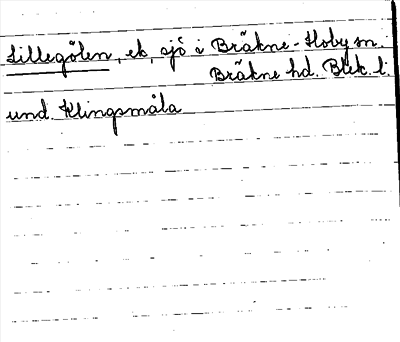 Lillegölen, ek, sjö i Bräkne-Hoby sn.
Bräkne hd. Blek. l.
und. Klingsmåla